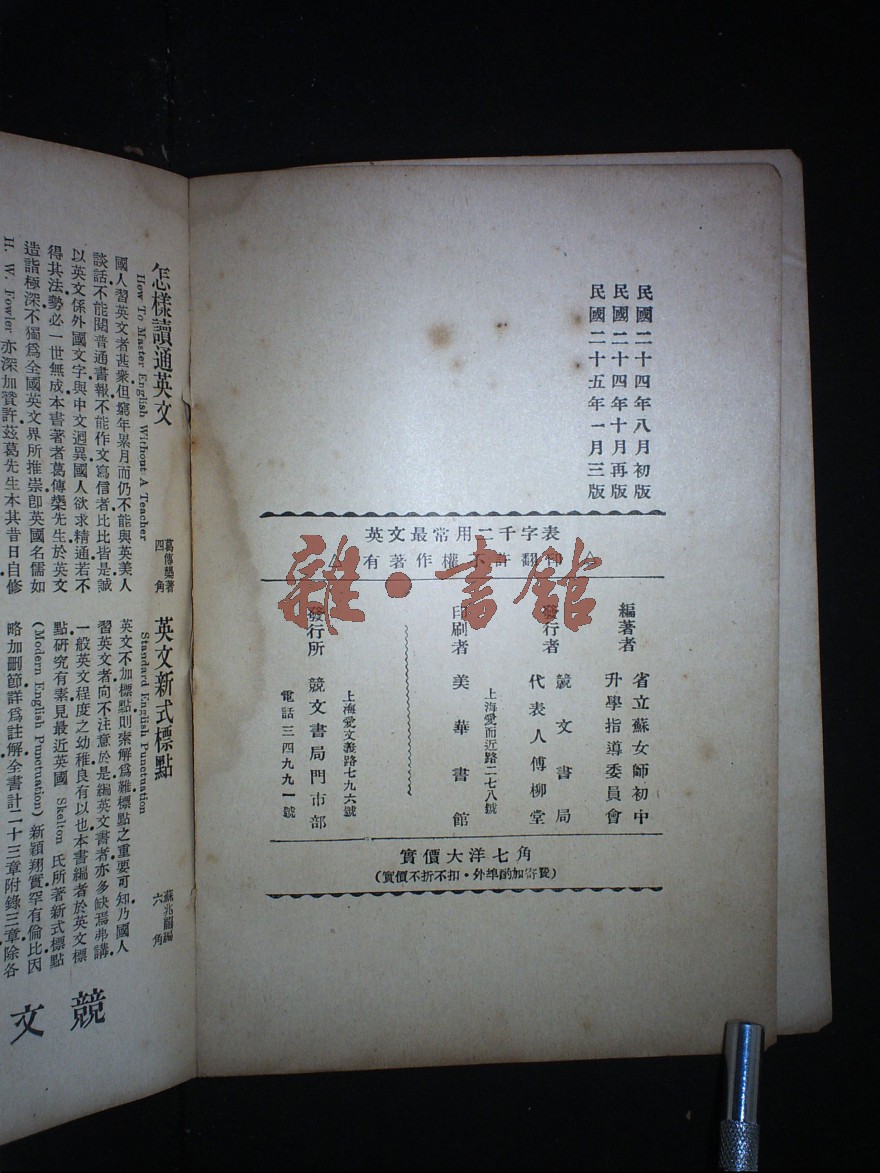 民國二十四年八月初版
民國二十四年十月再版
民國二十五年一月三版
英文最常用二千字表
有著作權不許翻印
編著者
省立蘇女師初中
升學指導委員會
發行者
競文書局
代表人傅柳堂
上海愛而近路二七八號
印刷者
美華書館
上海愛文義路七九六號
發行所
競文書局門市部
電話三四九九一號
實價大洋七角
(實價不折不扣·外埠酌加寄費)
雜·書館
怎樣讀通英文
How To Master English Without A Teacher
葛傳槼著
四角
國人習英文者甚衆.但窮年累月而仍不能與英美人
談話不能閱普通書報不能作文寫信者比比皆是誠
以英文係外國文字與中文迥異國人欲求精通若不
得其法.勢必一世無成.本書著者葛傳槼先生於英文
造詣極深不獨爲全國英文界所推崇卽英國名儒如
H. W. Fowler 亦深加贊許.茲葛先生本其昔日自修
英文新式標點
Standard English Punctuation
蘇兆龍編
六角
英文不加標點.則索解爲難.標點之重要可知.乃國人
習英文者向不注意於是.編英文書者亦多缺焉弗講.
一般英文程度之幼稚.良有以也.本書編者於英文標
點研究有素.見最近英國 Skelton 氏所著新式標點
(Modern English Punctuation) 新穎翔實.罕有倫比.因
略加刪節.詳爲註解.全書計二十三章.附錄三章.除各
競文